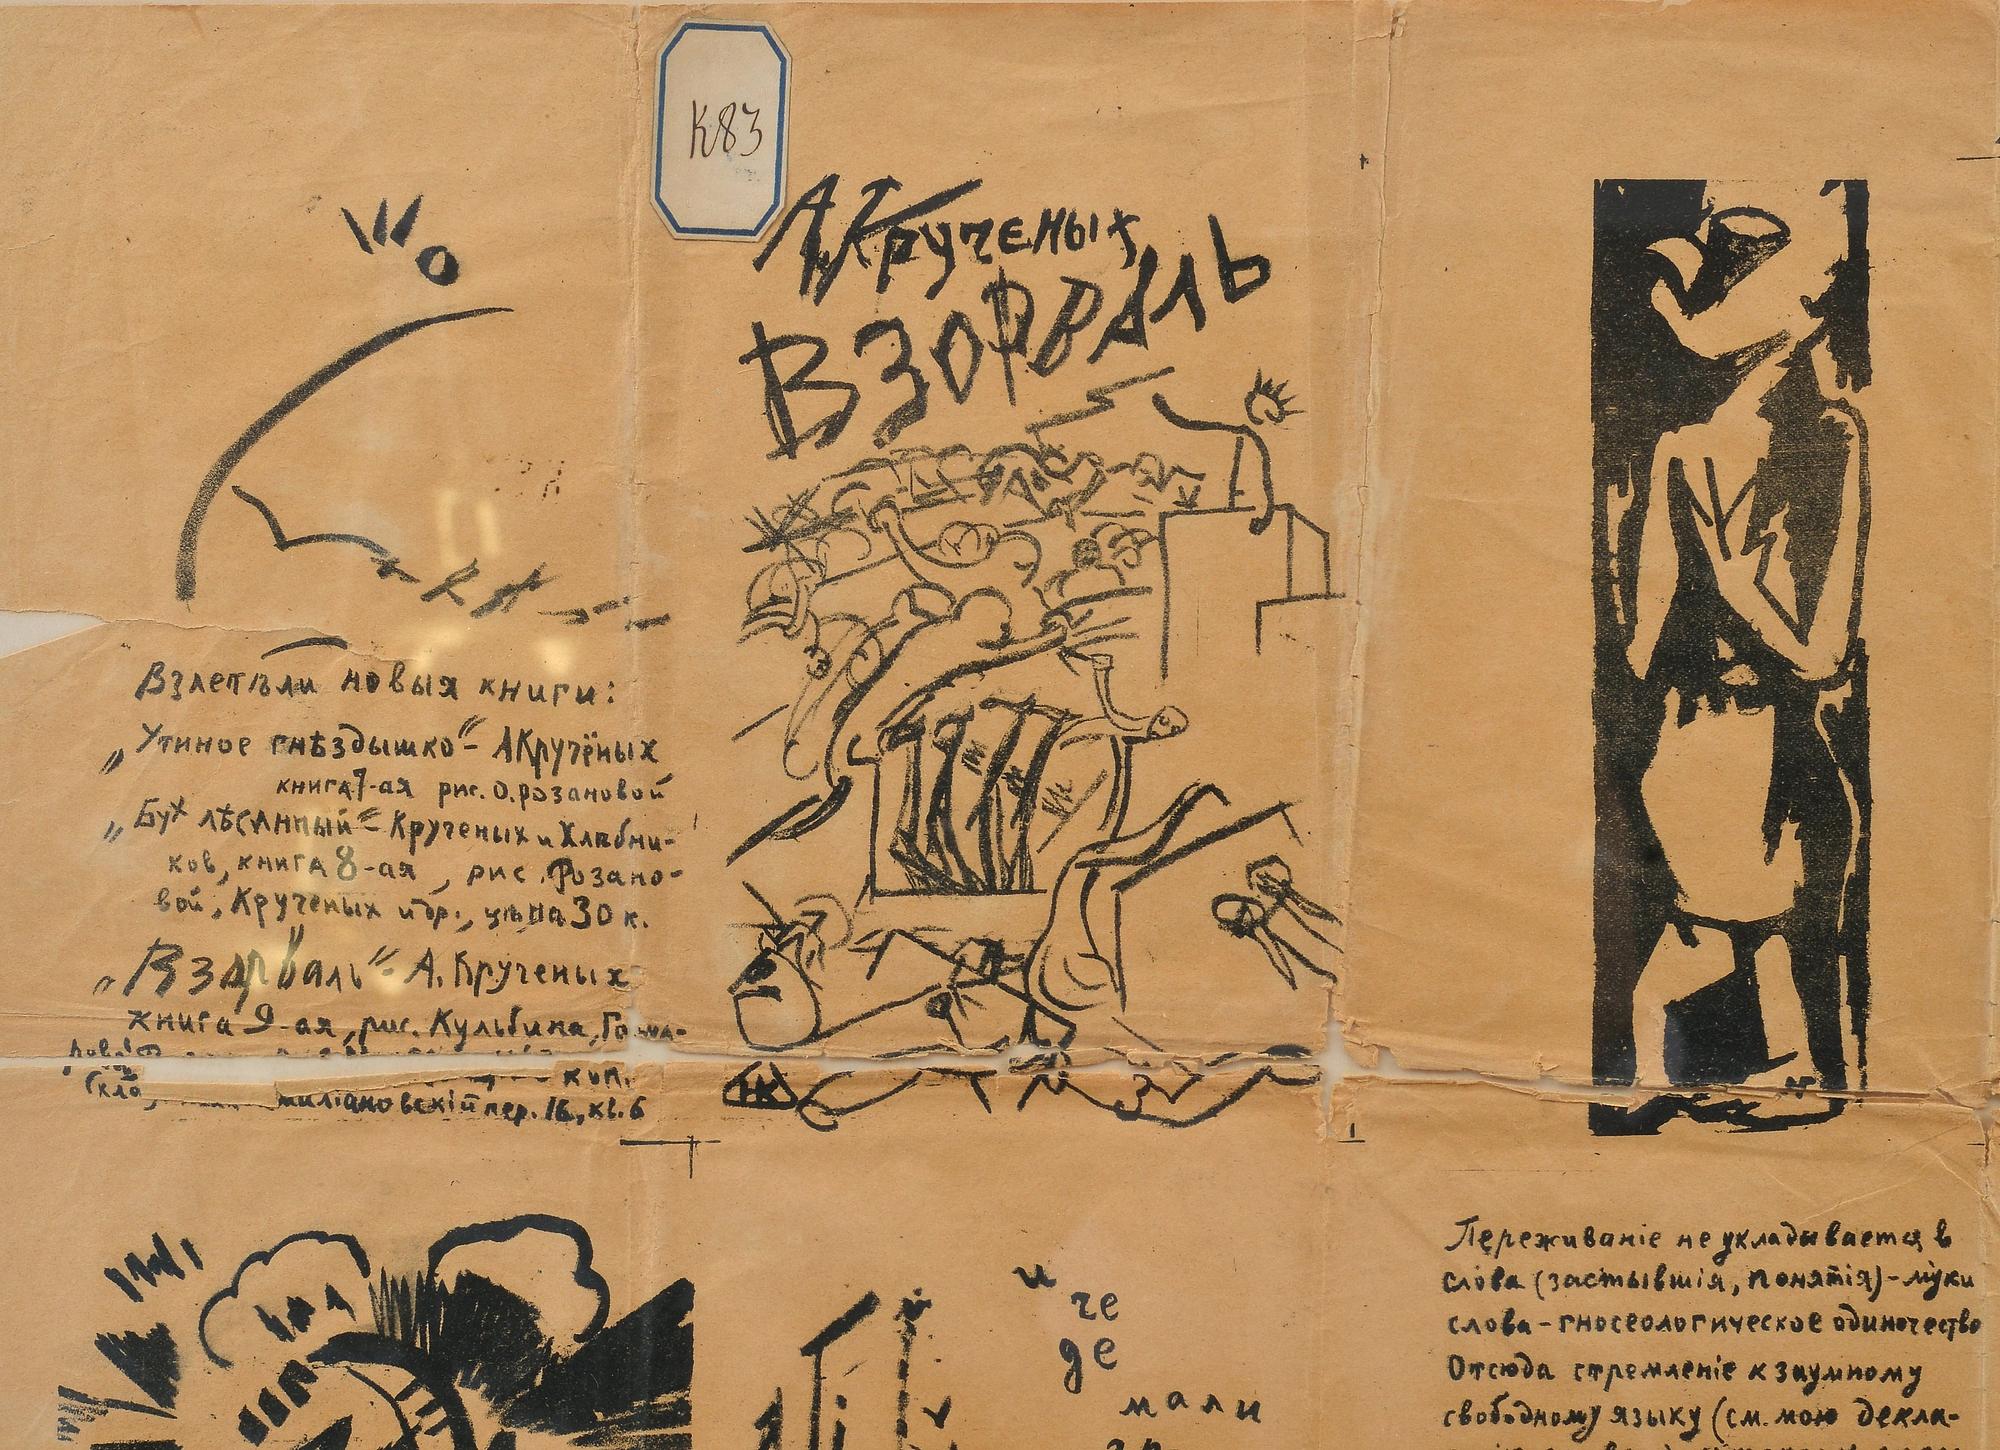 К83
А. Крученых
ВЗОРВАЛЬ
ШО
Взлетѣли новыя книги:
„Утиное гнѣздышко“ – А Кручёных
книга 7-ая рис. О. Розановой
„Бух лѣсинный“ – Крученых и Хлѣбни-
ков, книга 8-ая, рис. Розано-
вой, Крученых и др., цѣна 30 к.
„Взорваль“ – А. Крученых
книга 9-ая, рис. Кульбина, Гонча-
коп.
Скла, милiановскiй пер. 16, кв. 6
НК
и
че
де
мали
Переживанiе не укладывается в
слова (застывшiя, понятiя) – муки
слова – гносеологическое одиночество
Отсюда стремленiе к заумному
свободному языку (см. мою декла-